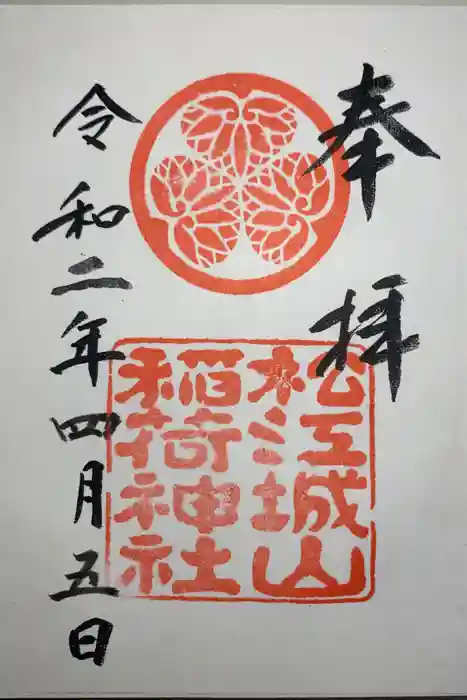 奉拝
松江城山
稲荷神社
令和二年四月五日